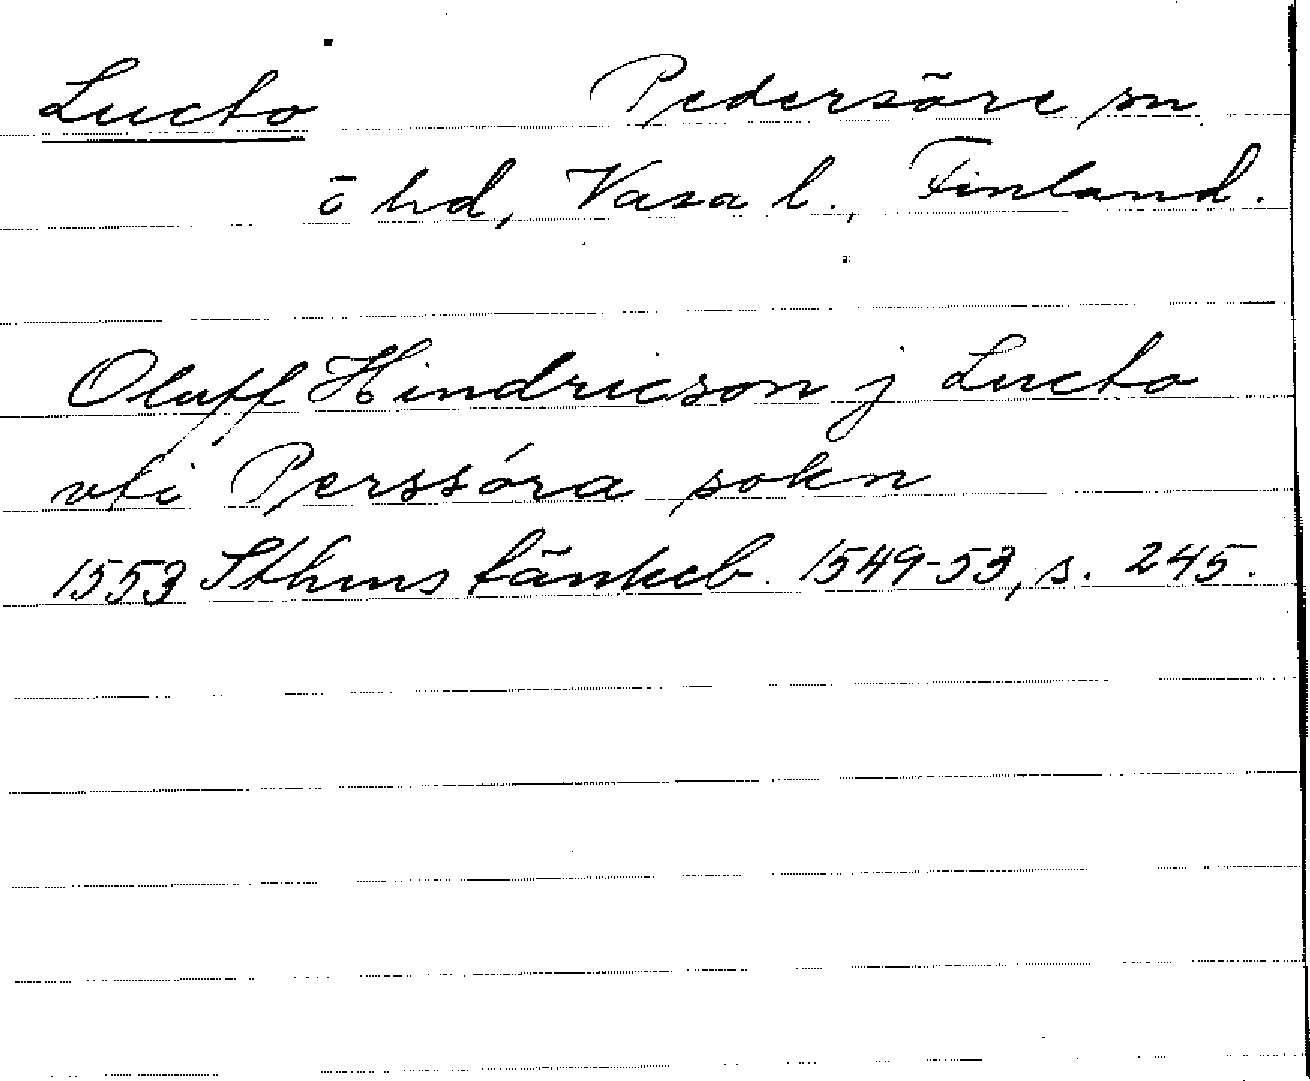 Lucto Pedersöre sn
o hd, Vasa l., Finland.
Oluff Hindricson j Lucto
vti Perssóra sokn
1553 Sthms tänkeb. 1549-53, s. 245.